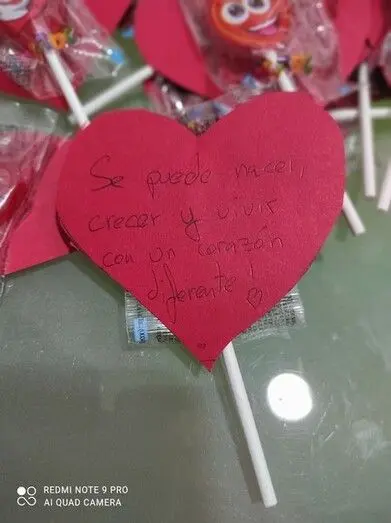 Se puede nacer,
crecer y vivir
con un corazón
diferente!
REDMI NOTE 9 PRO
AI QUAD CAMERA